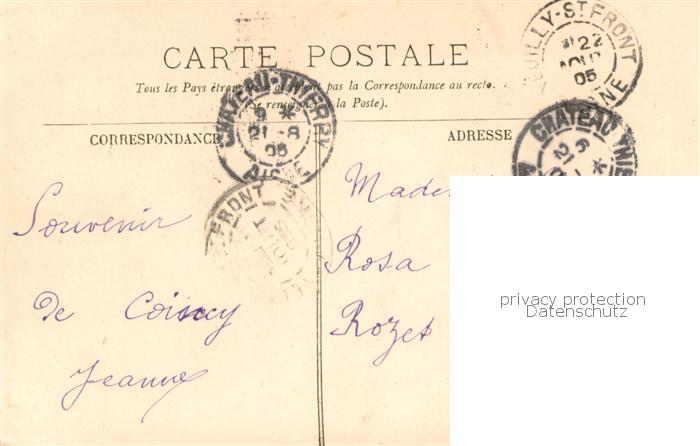 CARTE POSTALE
Tous les Pays étrangers n'acceptent pas la Correspondance au recto.
(Se renseigner à la Poste).
CORRESPONDANCE
ADRESSE
CHATEAU-THIERRY
9 *
21 -8
05
AISNE
NEUILLY-ST FRONT
22
AOUT
05
AISNE
CHATEAU THIE
Souvenir
de Coincy
Jeanne
Madem
Rosa
Rozet
privacy protection
Datenschutz